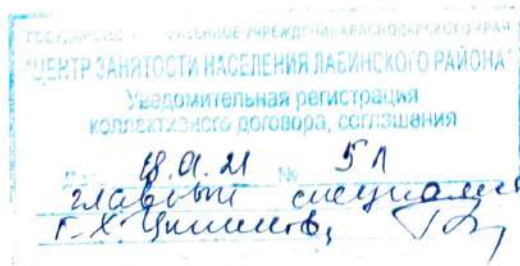 ГОСУДАРСТВЕННОЕ КАЗЕННОЕ УЧРЕЖДЕНИЕ КРАСНОДАРСКОГО КРАЯ
"ЦЕНТР ЗАНЯТОСТИ НАСЕЛЕНИЯ ЛАБИНСКОГО РАЙОНА"
Уведомительная регистрация
коллективного договора, соглашения
18.01.21 № 5Л
главный специалист
Г.Х.